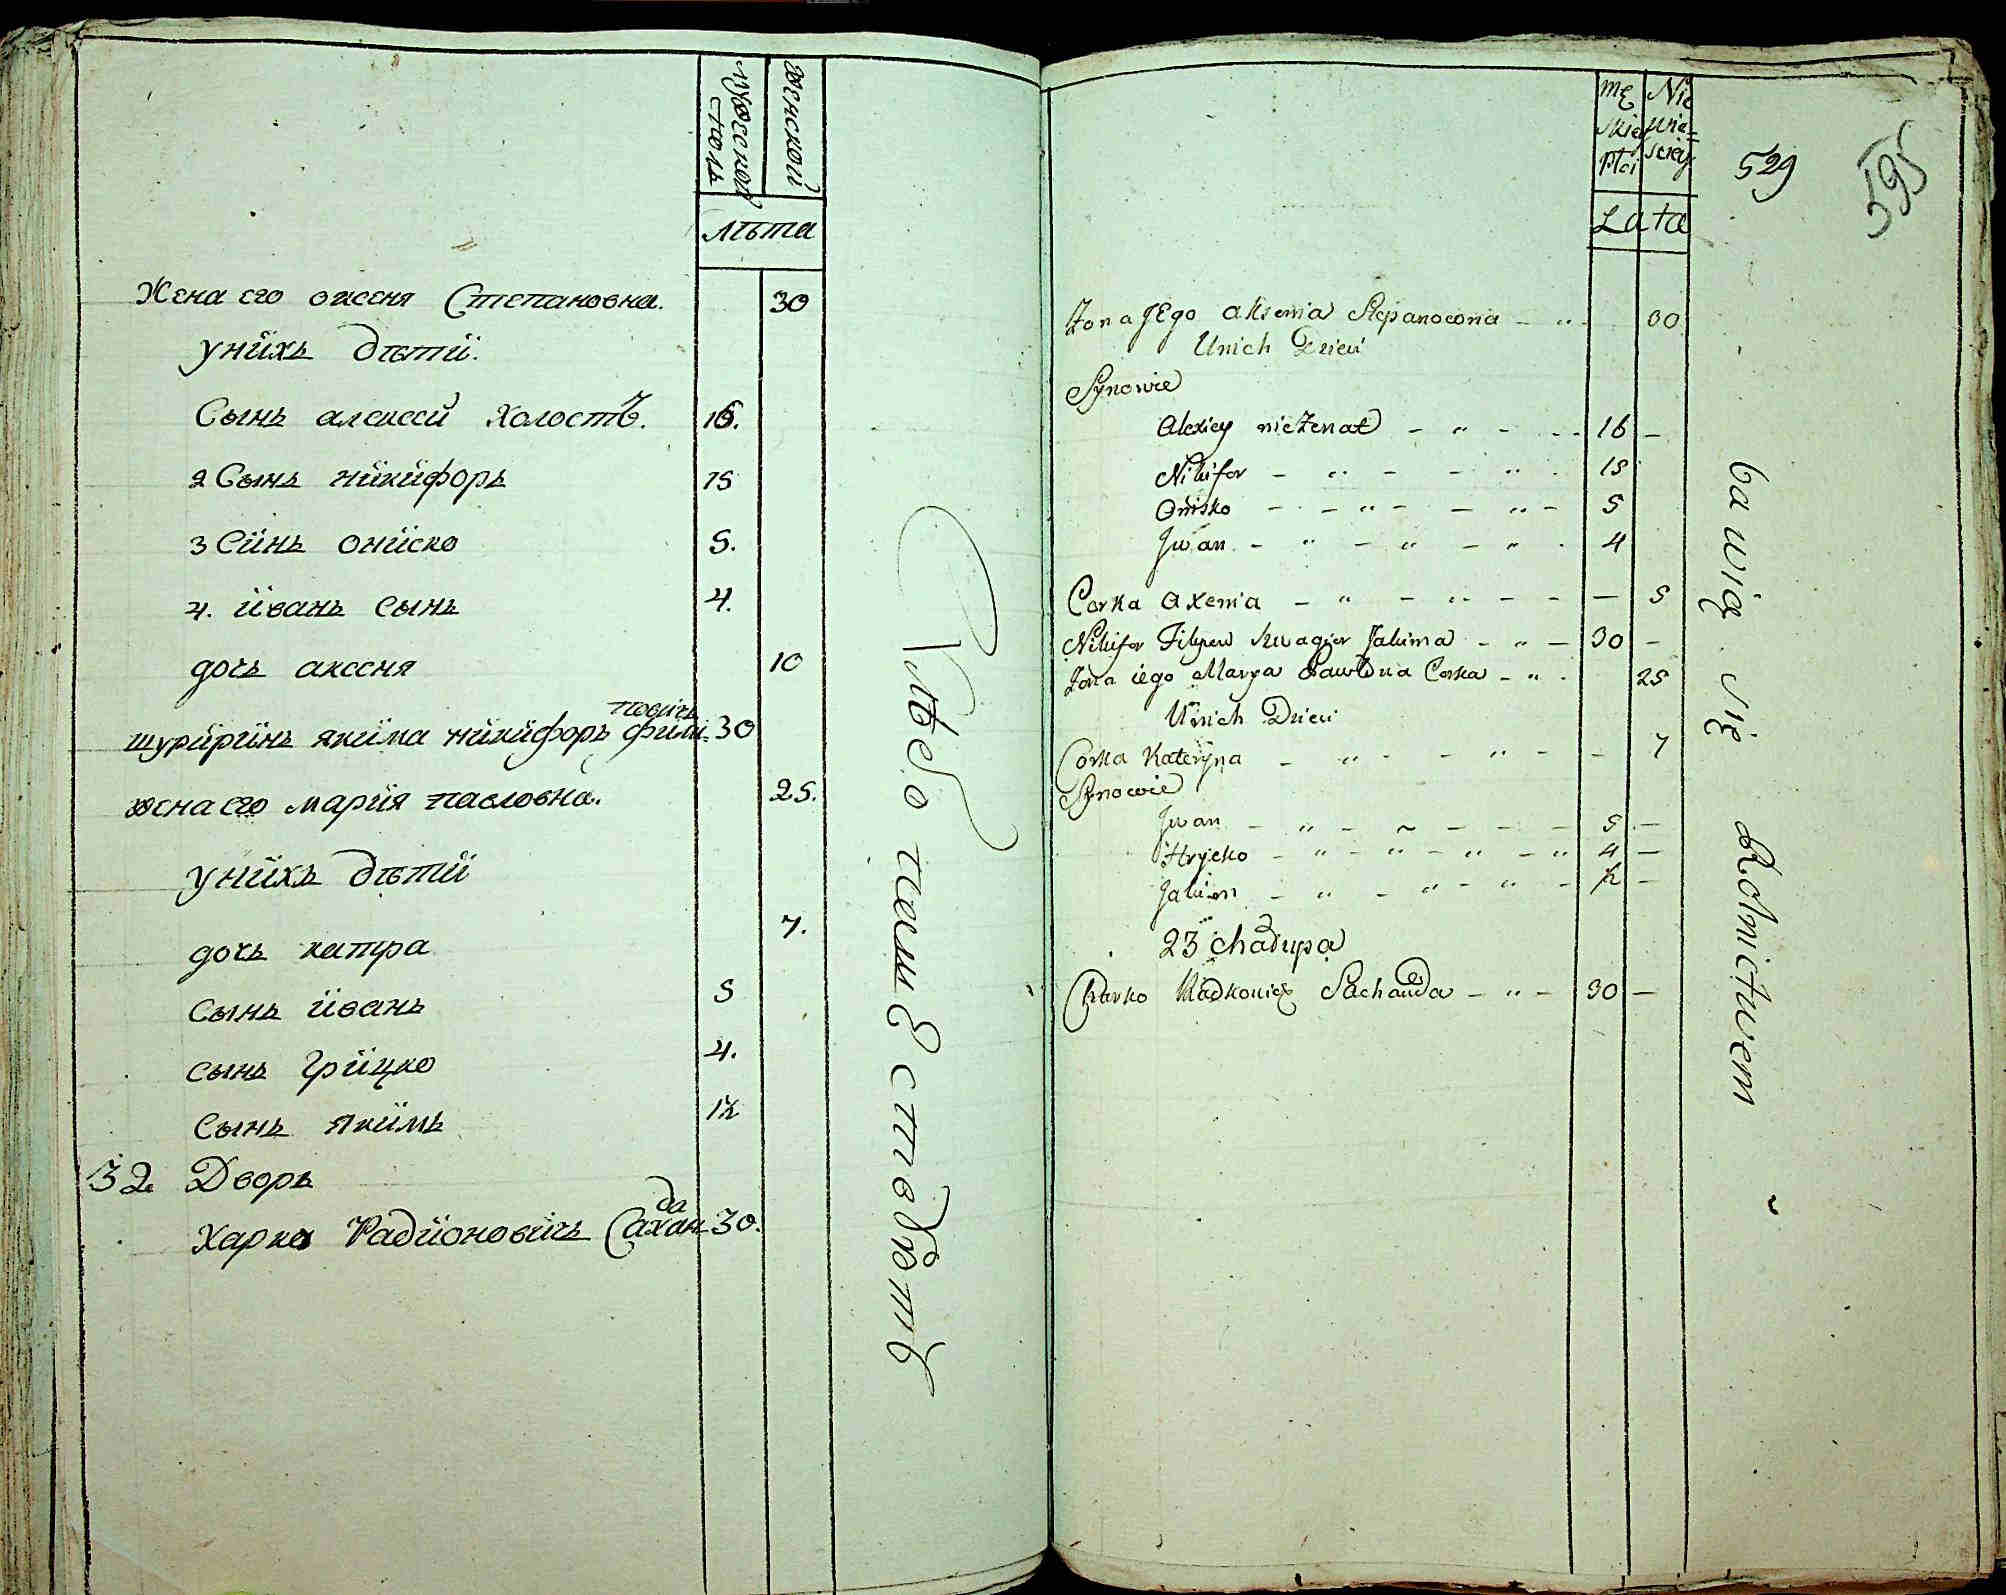 мужескои
столь
женской
лѣта
Жена его оксеня Степановна. 30
унїхъ дѣтї.
Сынъ алексей холостъ. 16.
2 Сынъ нїкїфоръ 15
3 Сїнъ онїско 5.
4. їванъ сынъ 4.
дочь аксеня 10
шурїрїнъ якїма нїкїфоръ філї- 30
повичъ
жена его марїя павловна. 25.
унїхъ дѣтї
дочь катра 7.
сынъ їванъ 5
сынъ грїцко 4.
сынъ якїмъ 1½
32 Дворъ
Харко Радїоновїчъ Сахан- 30.
да
хлѣбопашествомъ
mę Nie
skiey wie-
Płci sckiey
Lata
529
595
Żona JEgo aksenia Stepanowna 30
Unich Dzieci
Synowie
Alexiey nieżenat 16
Nikifor 15
Onisko 5
Jwan 4
Corka axenia 5
Nikifor Filipow szwagier Jakima 30
Żona iego Marya Pawłowna Corka 25
Unich Dzieci
Corka Kateryna 7
Synowie
Jwan 5
Hrycko 4
Jakim ½
23 chałupa
Charko Radkowicz Sachanda 30
bawią się Rolnictwem